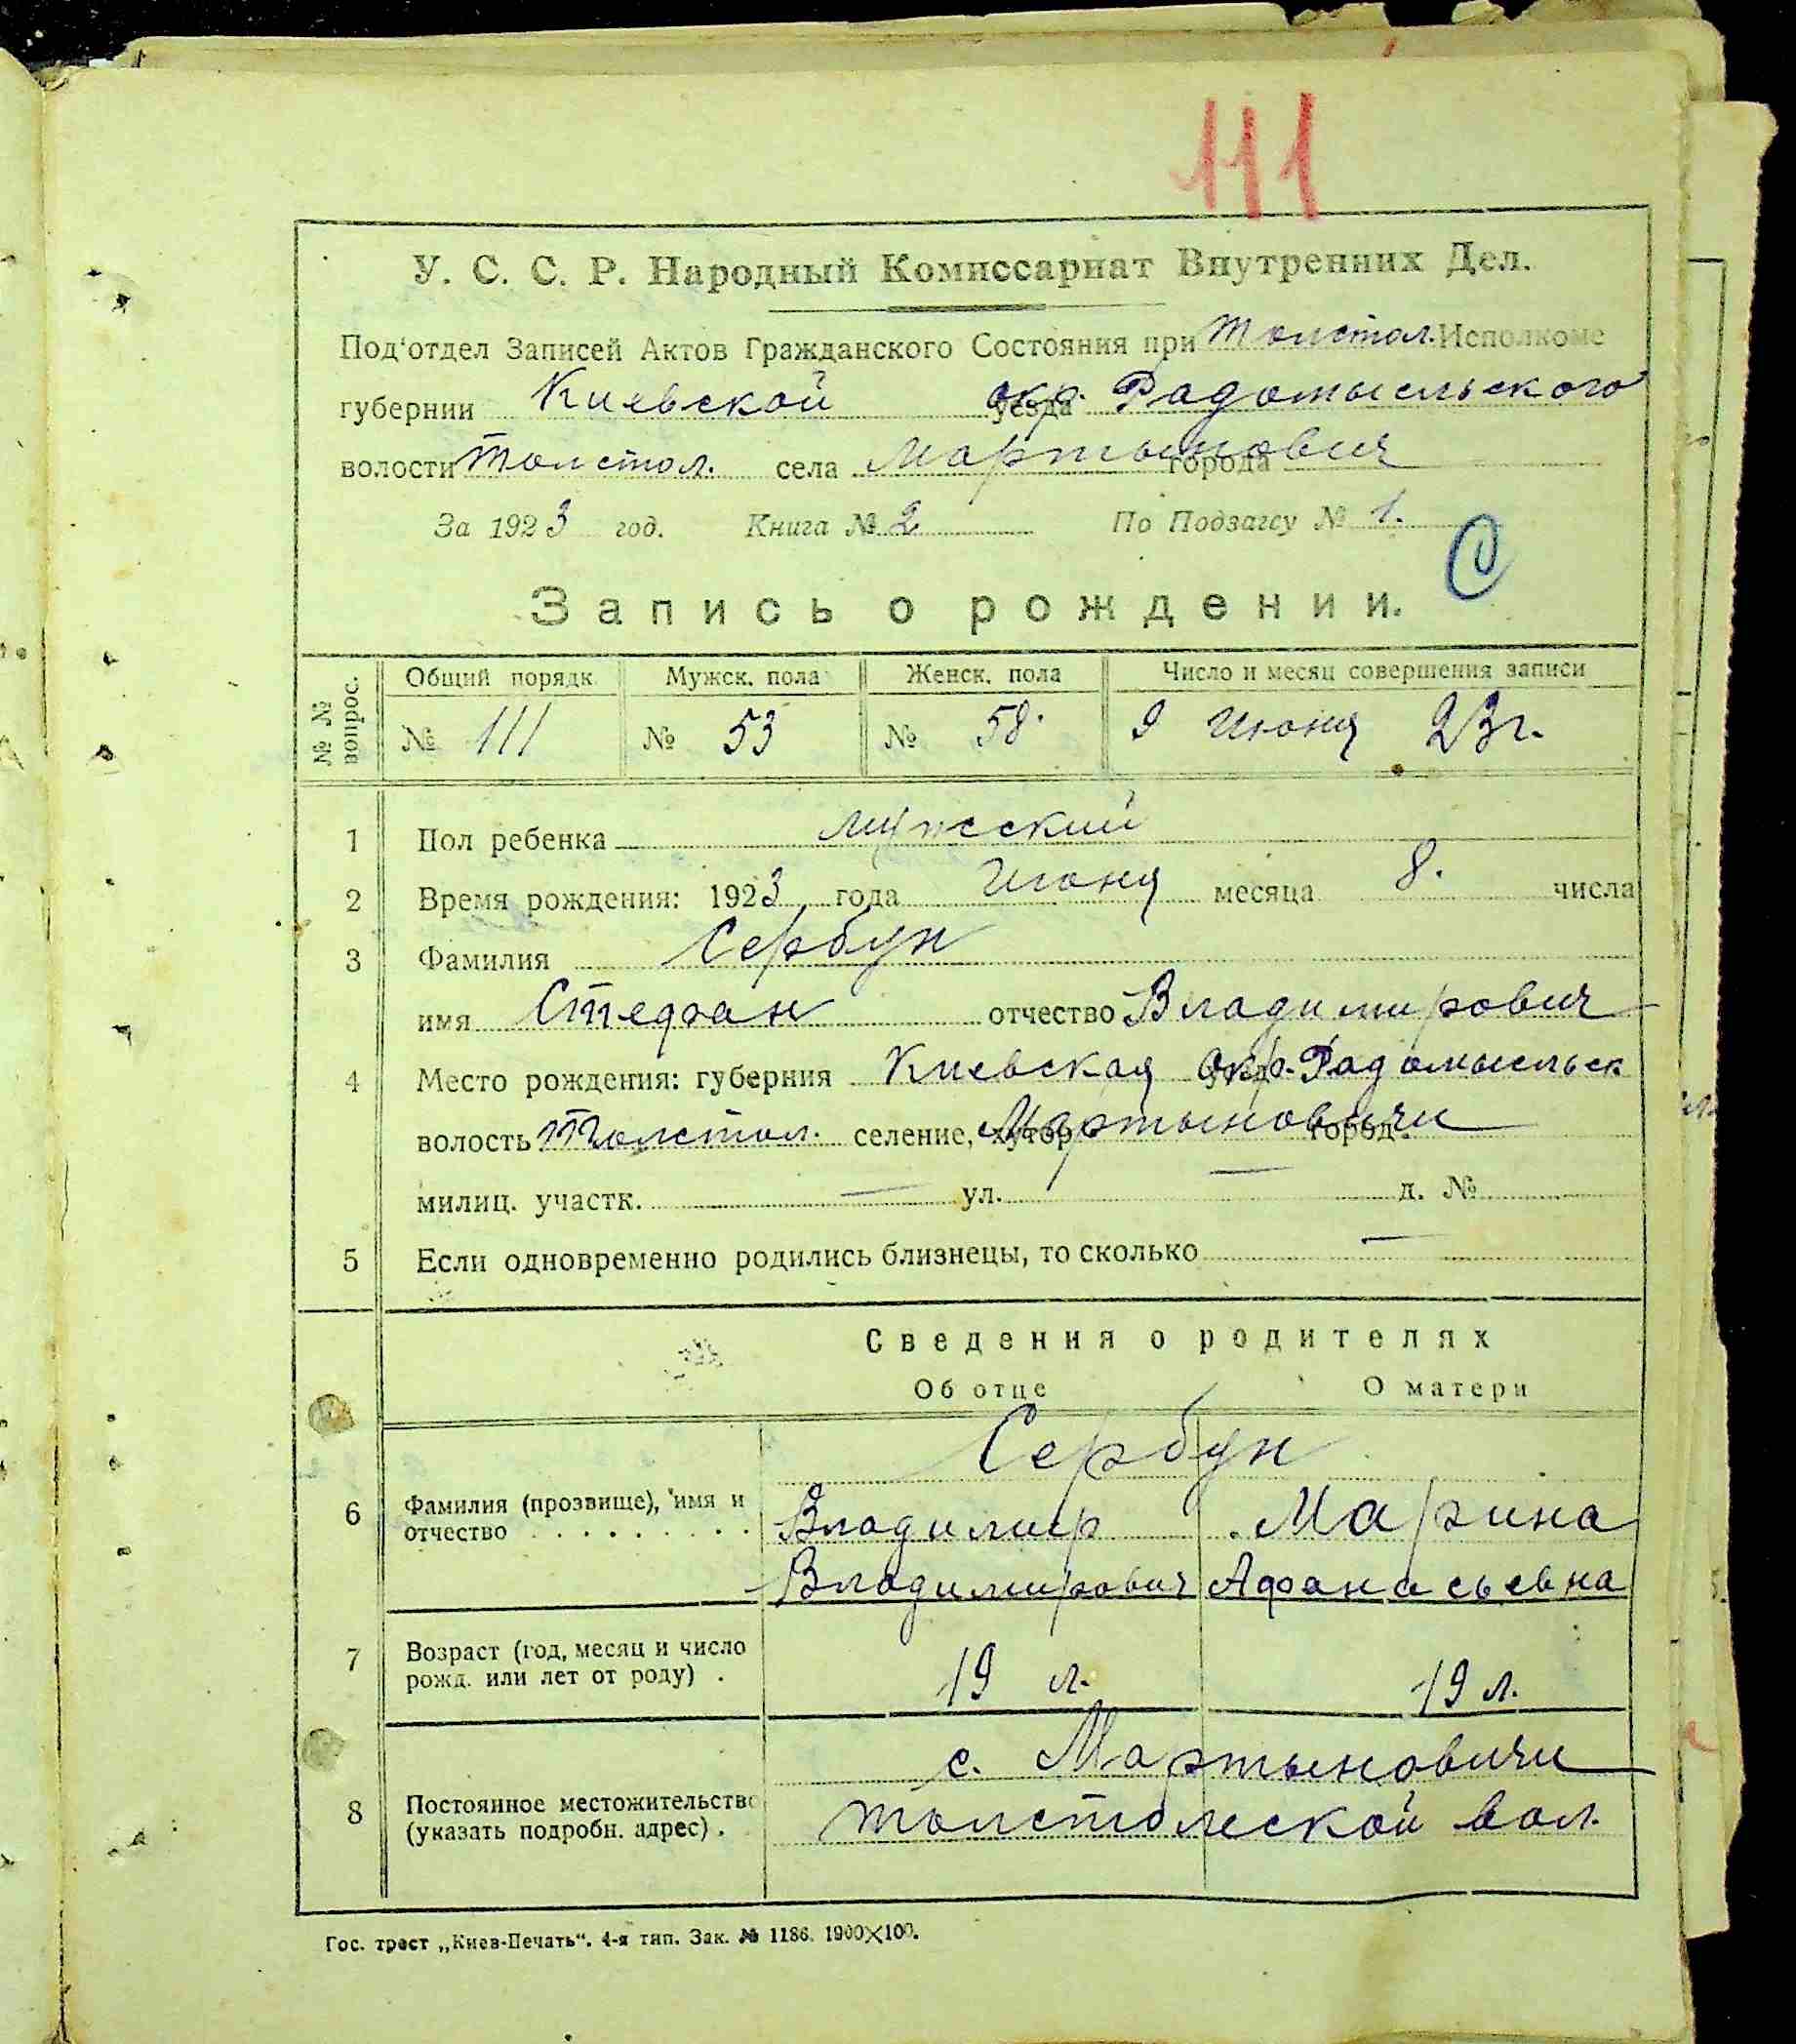 111
У. С. С. Р. Народный Комиссариат Внутренних Дел.
Под'отдел Записей Актов Гражданского Состояния при Толстол. Исполкоме
губернии Киевской уезда окр. Радомысльского
волости Толстол. села Мартынович города
За 1923 год. Книга № 2 По Подзагсу № 1.
Запись о рождении.
№ № вопрос. Общий порядк. Мужск. пола Женск. пола Число и месяц совершения записи
№ 111 № 53 № 58. 9 Июня 23 г.
1 Пол ребенка мужской
2 Время рождения: 1923 года Июня месяца 8. числа
3 Фамилия Сербун
имя Стефан отчество Владимирович
4 Место рождения: губерния Киевская Окр. Радомысльск
волость Толстол. селение, хутор Мартыновичи город.
милиц. участк. — ул. — д. №
5 Если одновременно родились близнецы, то сколько —
Сведения о родителях
Об отце О матери
Сербун
6 Фамилия (прозвище), имя и отчество Владимир Марина
Владимирович Афанасьевна
7 Возраст (год, месяц и число рожд. или лет от роду) . 19 л. 19 л.
с. Мартыновичи
8 Постоянное местожительство (указать подробн. адрес) . Толстолеской вол.
Гос. трест „Киев-Печать“. 4-я тип. Зак. № 1186. 1900×100.